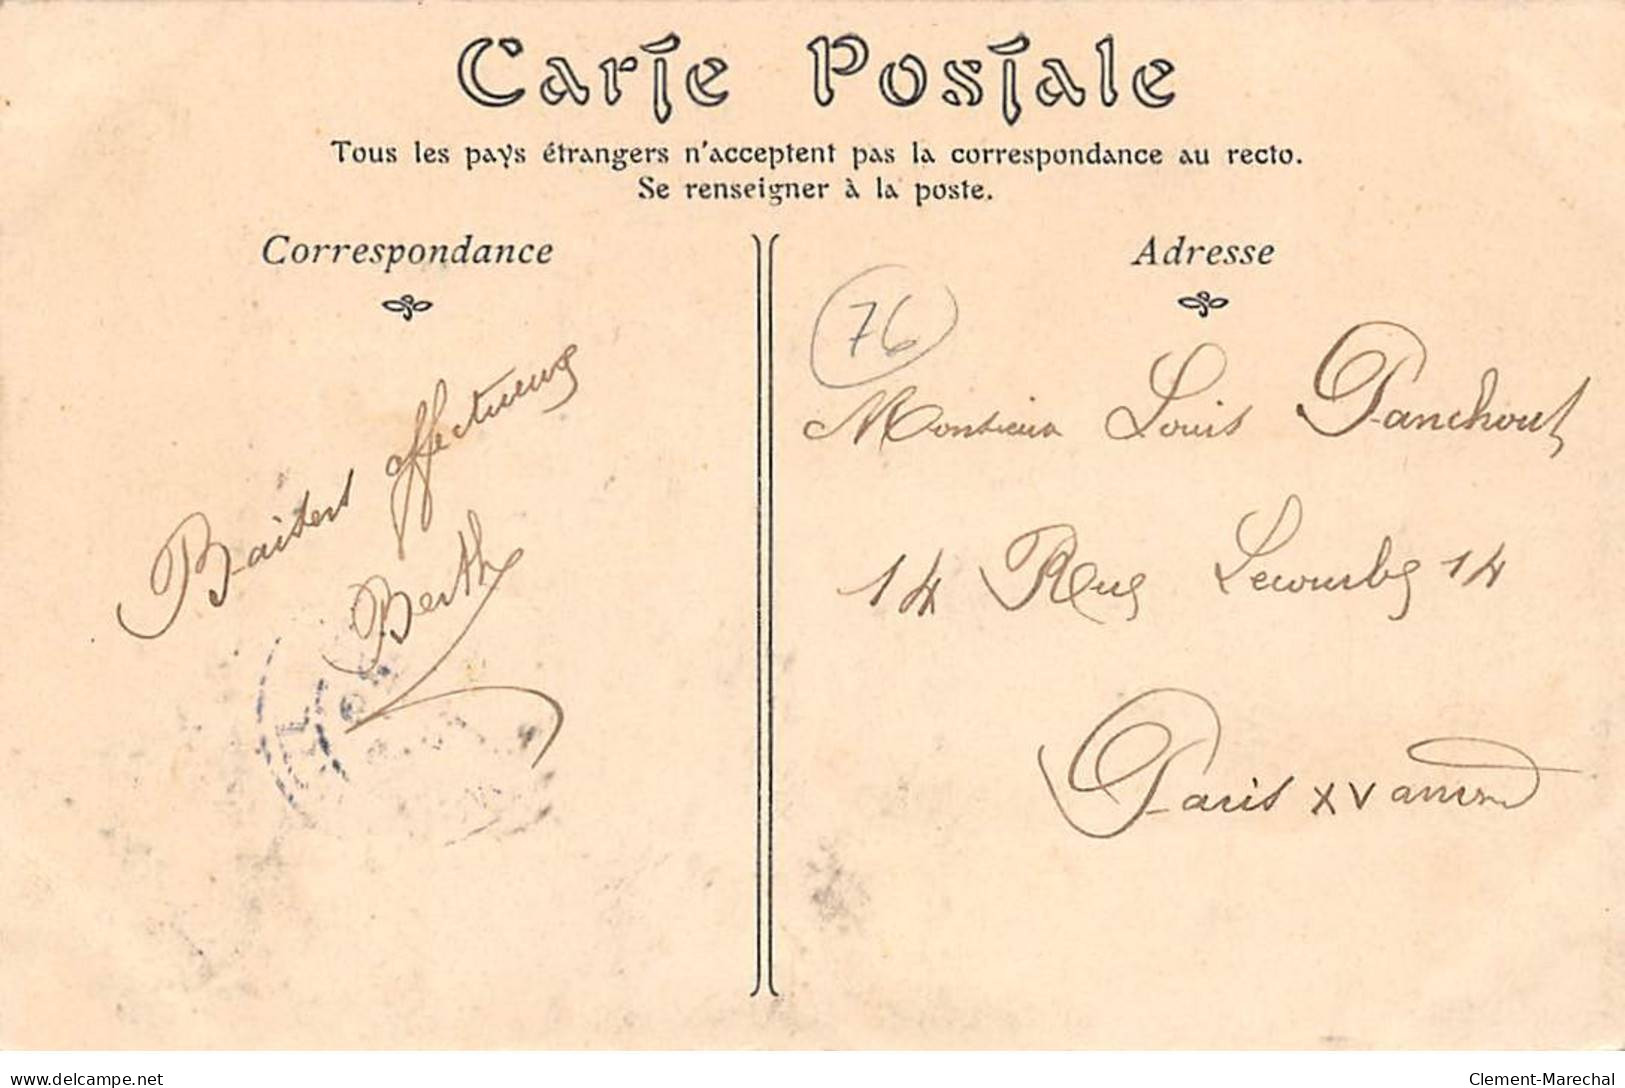 Carte Postale
Tous les pays étrangers n'acceptent pas la correspondance au recto.
Se renseigner à la poste.
Correspondance
Baisers affectueux
Berthe
Adresse
76
Monsieur Louis Panchout
14 Rue Lecourbe 14
Paris XV arrond
delcampe.net
Clement-Marechal